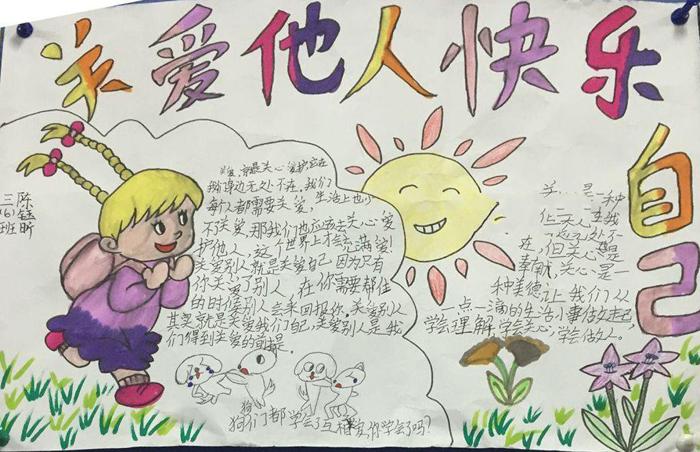 关爱他人快乐
自己
三(6)班
陈钰昕
关爱,就是关心爱护它在
我们身边无处不在,我们
每个人都需要关爱,生活上也少
不了关爱,那我们也应该去关心爱
护他人,这个世界上才会充满爱!
关爱别人就是关爱自己,因为只有
你关爱了别人,在你需要帮住
的时候别人会来回报你,关爱别人
其实就是关爱我们自己,关爱别人是我
们得到关爱的前提.
狗
狗们都学会了互相爱,你学会了吗?
是一种
在,但关心是
幸福,关心是一
种美德,让我们从
一点一滴的生活小事做起,
学会理解学会关心,学会做人。